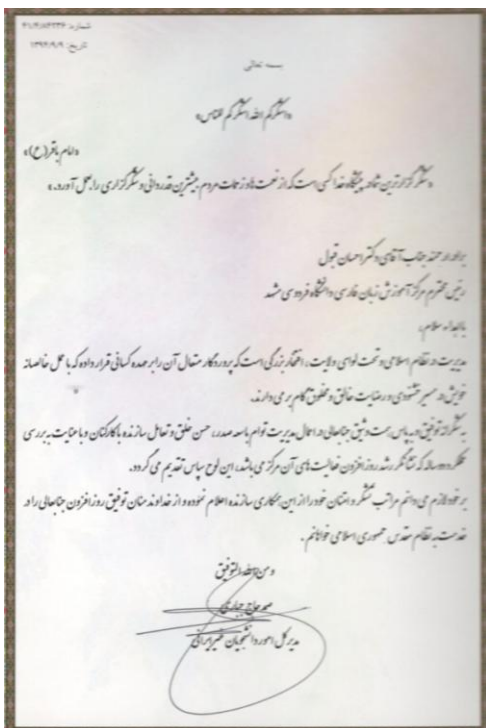 شماره: ۴۱/۴/۸۴۲۳۶
تاریخ: ۱۳۹۴/۹/۹
بسمه تعالی
«اشکرکم الله اشکرکم للناس»
«امام باقر(ع)»
«شکرگزارترین شما به پیشگاه خدا کسی است که از نعمت‌ها و زحمات مردم، بیشترین قدردانی و شکرگزاری را بعمل آورد.»
برادر ارجمند جناب آقای دکتر احسان قبول
رئیس محترم مرکز آموزش زبان فارسی دانشگاه فردوسی مشهد
با اهداء سلام،
مدیریت در نظام اسلامی و تحت لوای ولایت، افتخار بزرگی است که پروردگار متعال آن را بر عهده کسانی قرار داده که با عمل خالصانه
خویش در مسیر خشنودی و رضایت خالق و مخلوق گام برمی دارند.
به شکرانه توفیق و به پاس همت وثیق جنابعالی در اعمال مدیریت توام با سعه صدر، حسن خلق و تعامل سازنده با کارکنان و با عنایت به بررسی
عملکرد دو ساله که نشانگر رشد روز افزون فعالیت های آن مرکز می باشد، این لوح سپاس تقدیم می گردد.
بر خود لازم می دانم مراتب تشکر و امتنان خود را از این همکاری سازنده اعلام نموده و از خداوند منان توفیق روز افزون جنابعالی را در
خدمت به نظام مقدس جمهوری اسلامی خواهانم.
و من الله التوفیق
مدیر کل امور دانشجویان غیر ایرانی